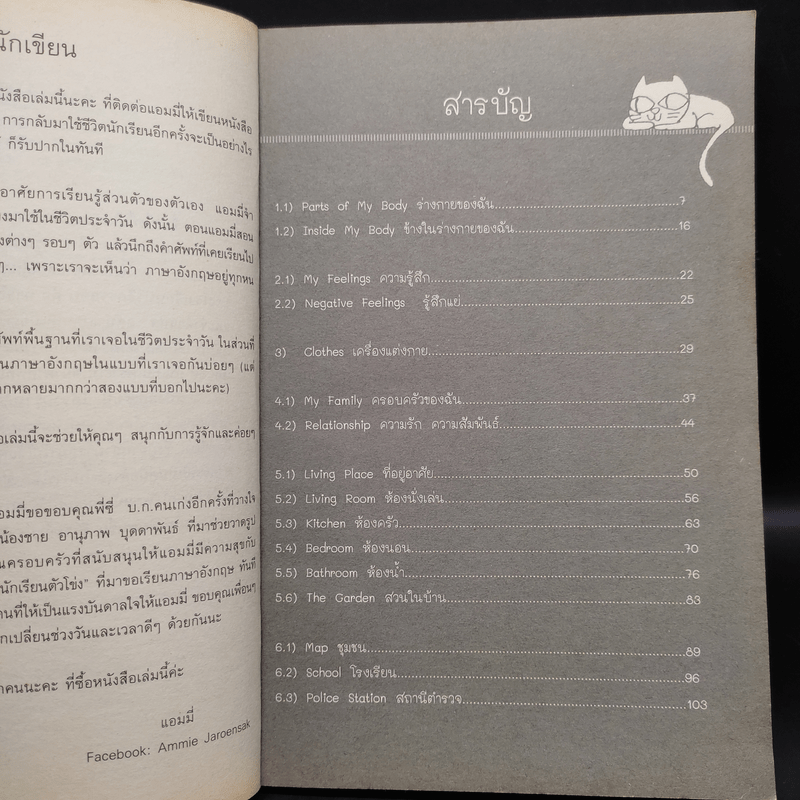 นักเขียน
นังสือเล่มนี้นะคะ ที่ติดต่อแอมมี่ให้เขียนหนังสือ
การกลับมาใช้ชีวิตนักเรียนอีกครั้งจะเป็นอย่างไร
ก็รับปากในทันที
อาศัยการเรียนรู้ส่วนตัวของตัวเอง แอมมี่จำ
มาใช้ในชีวิตประจำวัน ดังนั้น ตอนแอมมี่สอน
งต่างๆ รอบๆ ตัว แล้วนึกถึงคำศัพท์ที่เคยเรียนไป
ๆ... เพราะเราจะเห็นว่า ภาษาอังกฤษอยู่ทุกหน
ศัพท์พื้นฐานที่เราเจอในชีวิตประจำวัน ในส่วนที่
นภาษาอังกฤษในแบบที่เราเจอกันบ่อยๆ (แต่
ากหลายมากกว่าสองแบบที่บอกไปนะคะ)
อเล่มนี้จะช่วยให้คุณๆ สนุกกับการรู้จักและค่อยๆ
อมมี่ขอขอบคุณพี่ซี่ บ.ก.คนเก่งอีกครั้งที่วางใจ
น้องชาย อานุภาพ บุดดาพันธ์ ที่มาช่วยวาดรูป
นครอบครัวที่สนับสนุนให้แอมมี่มีความสุขกับ
นักเรียนตัวโข่ง" ที่มาขอเรียนภาษาอังกฤษ ทันที
คนที่ให้เป็นแรงบันดาลใจให้แอมมี่ ขอบคุณเพื่อนๆ
กเปลี่ยนช่วงวันและเวลาดีๆ ด้วยกันนะ
คนนะคะ ที่ซื้อหนังสือเล่มนี้ค่ะ
แอมมี่
Facebook: Ammie Jaroensak
สารบัญ
1.1) Parts of My Body ร่างกายของฉัน 7
1.2) Inside My Body ข้างในร่างกายของฉัน 16
2.1) My Feelings ความรู้สึก 22
2.2) Negative Feelings รู้สึกแย่ 25
3) Clothes เครื่องแต่งกาย 29
4.1) My Family ครอบครัวของฉัน 37
4.2) Relationship ความรัก ความสัมพันธ์ 44
5.1) Living Place ที่อยู่อาศัย 50
5.2) Living Room ห้องนั่งเล่น 56
5.3) Kitchen ห้องครัว 63
5.4) Bedroom ห้องนอน 70
5.5) Bathroom ห้องน้ำ 76
5.6) The Garden สวนในบ้าน 83
6.1) Map ชุมชน 89
6.2) School โรงเรียน 96
6.3) Police Station สถานีตำรวจ 103